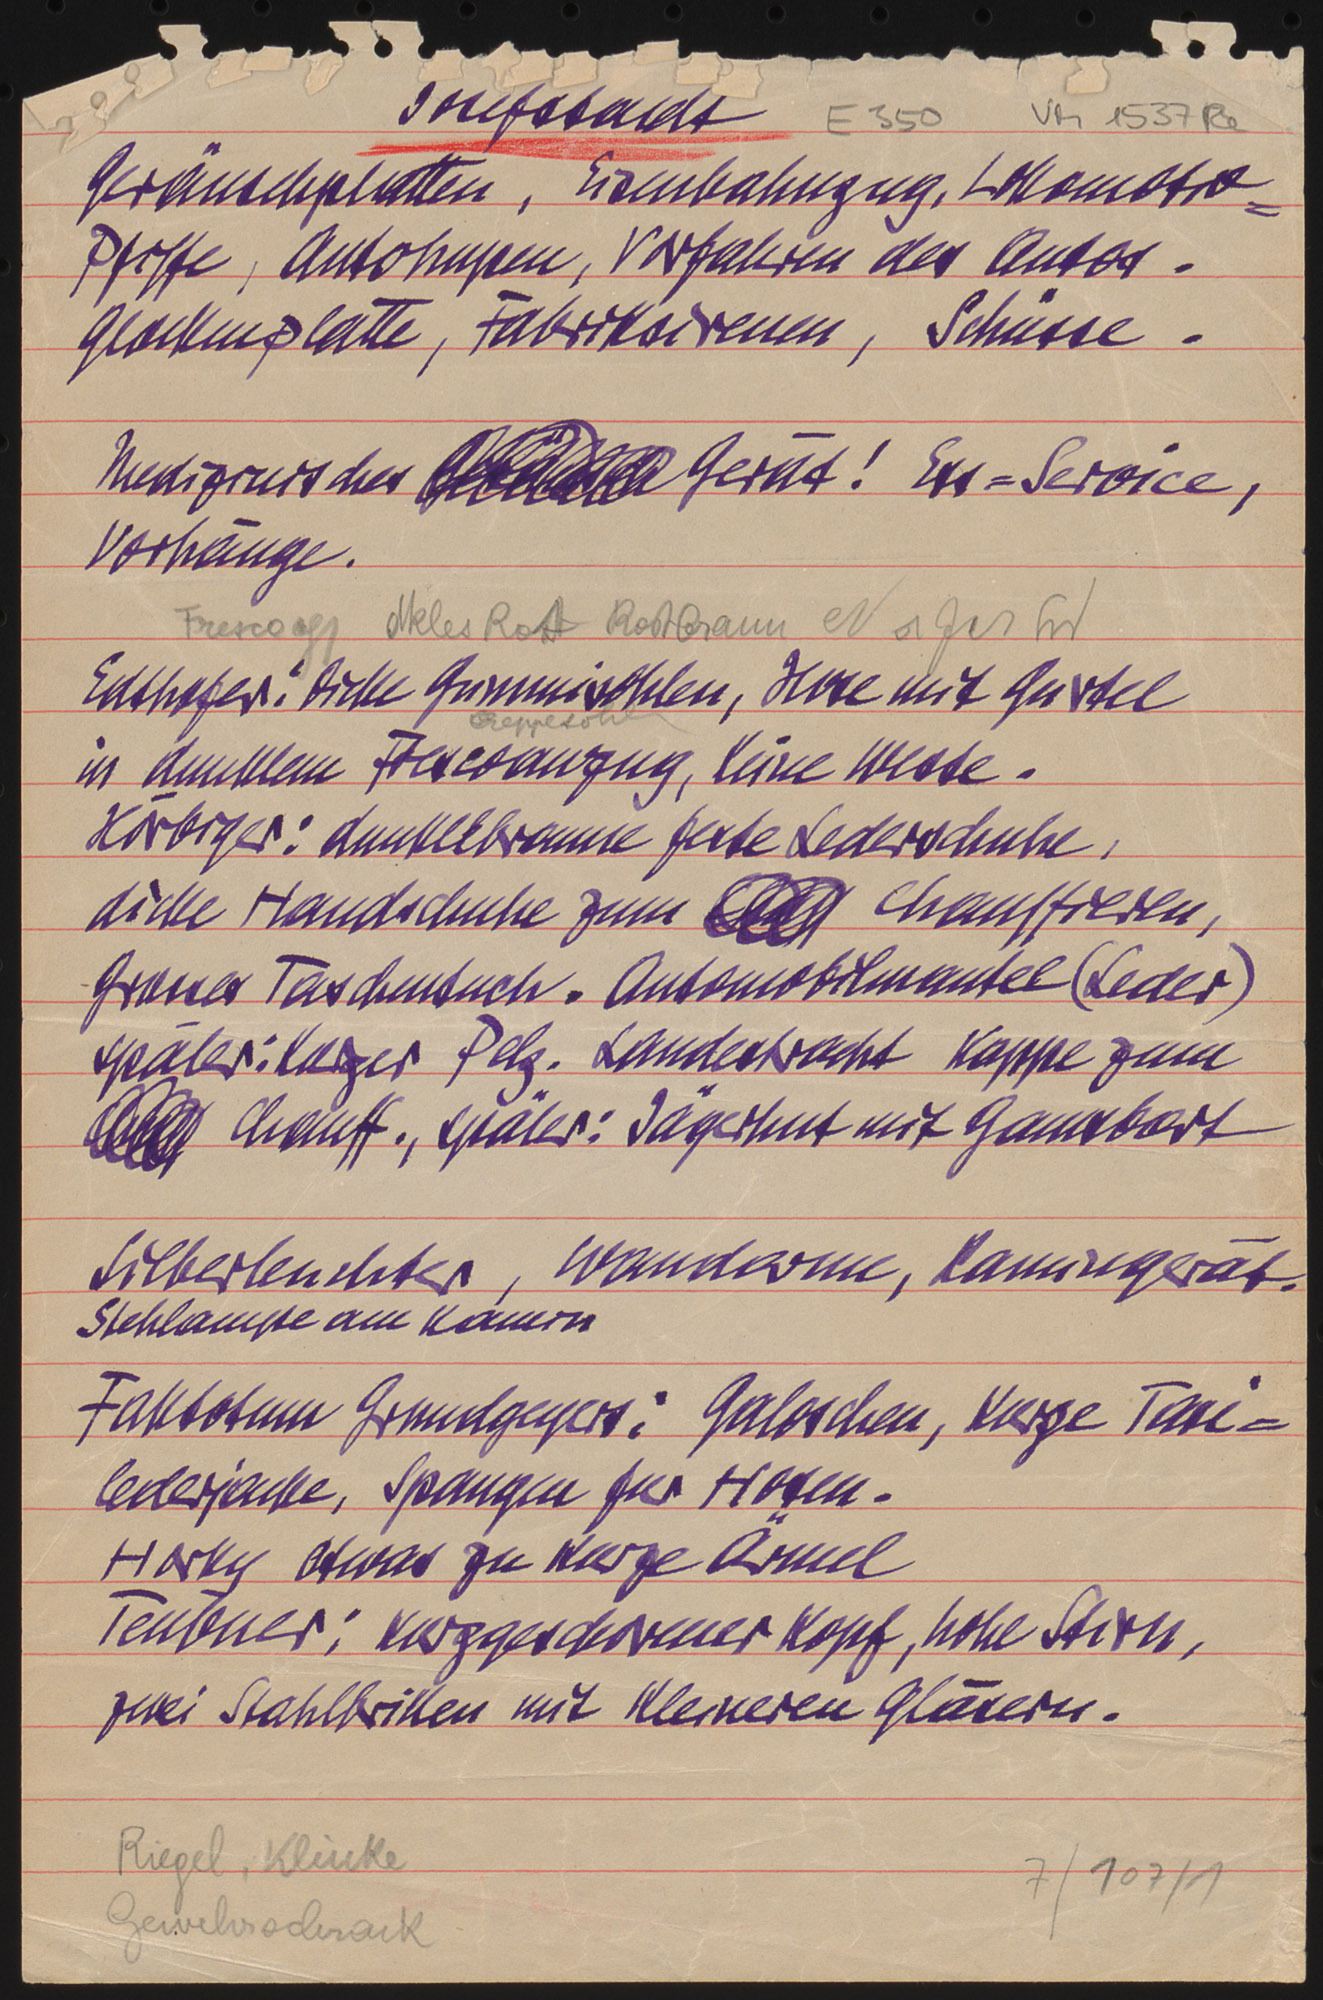 Josefstadt E 350 VM 1537 Re
Geräuschplatten, Eisenbahnzug, Lokomotiv=
Pfiffe, Autohupen, Vorfahren des Autos.
Glockenplatte, Fabriksirenen, Schüsse.
Medizinisches Gerät! Ess=Service,
Vorhänge.
Rost Rostbraun
Edthofer: dicke Gummisohlen, Hose mit Gürtel
Kreppesohlen
in dunklem Frescoanzug, keine Weste.
Hörbiger: dunkelbraune feste Lederschuhe,
dicke Handschuhe zum Chauffieren,
Grosses Taschentuch. Automobilmantel (Leder)
später: kurzer Pelz. Landestracht Kappe zum
Chauff., später: Jägerhut mit Gamsbart
Silberleuchter, Wandarme, Kamingerät.
Stehlampe am Kamin
Faktotum Grundgeyers: Galoschen, kurze Taxi=
lederjacke, Spangen für Hosen.
Horky etwas zu kurze Ärmel
Teubner: kurzgeschorener Kopf, hohe Stirn,
zwei Stahlbrillen mit kleineren Gläsern.
Riegel, Klinke
Gewehrschrank
7/107/1